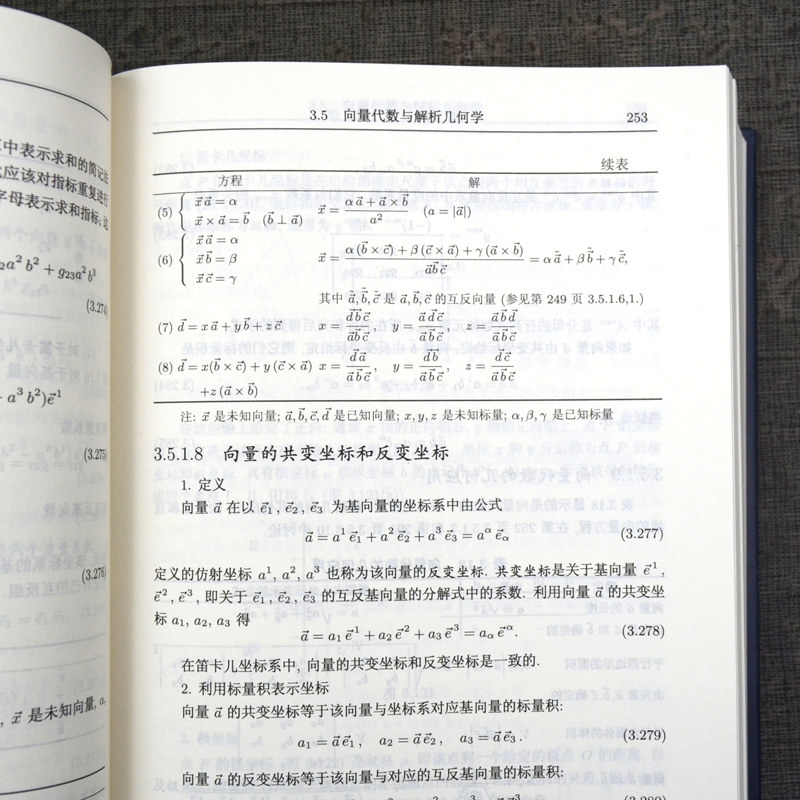 中表示求和的简记法
应该对指标重复进行
字母表示求和指标, 这
₂a²b² + g₂₃a²b³
(3.274)
a³b²)e⃗¹
(3.275)
(3.276)
, x⃗ 是未知向量, a,
3.5 向量代数与解析几何学 253
续表
方程 解
(5) { x⃗a⃗ = α
x⃗ × a⃗ = b⃗ (b⃗ ⊥ a⃗) x⃗ = (αa⃗ + a⃗ × b⃗)/a² (a = |a⃗|)
(6) { x⃗a⃗ = α
x⃗b⃗ = β
x⃗c⃗ = γ x⃗ = (α(b⃗ × c⃗) + β(c⃗ × a⃗) + γ(a⃗ × b⃗))/(a⃗b⃗c⃗) = αã⃗ + βb̃⃗ + γc̃⃗,
其中 ã⃗, b̃⃗, c̃⃗ 是 a⃗, b⃗, c⃗ 的互反向量 (参见第 249 页 3.5.1.6,1.)
(7) d⃗ = xa⃗ + yb⃗ + zc⃗ x = (d⃗b⃗c⃗)/(a⃗b⃗c⃗), y = (a⃗d⃗c⃗)/(a⃗b⃗c⃗), z = (a⃗b⃗d⃗)/(a⃗b⃗c⃗)
(8) d⃗ = x(b⃗ × c⃗) + y(c⃗ × a⃗) x = (d⃗a⃗)/(a⃗b⃗c⃗), y = (d⃗b⃗)/(a⃗b⃗c⃗), z = (d⃗c⃗)/(a⃗b⃗c⃗)
+z(a⃗ × b⃗)
注: x⃗ 是未知向量; a⃗, b⃗, c⃗, d⃗ 是已知向量; x, y, z 是未知标量; α, β, γ 是已知标量
3.5.1.8 向量的共变坐标和反变坐标
1. 定义
向量 a⃗ 在以 e⃗₁, e⃗₂, e⃗₃ 为基向量的坐标系中由公式
a⃗ = a¹e⃗₁ + a²e⃗₂ + a³e⃗₃ = aᵅe⃗α (3.277)
定义的仿射坐标 a¹, a², a³ 也称为该向量的反变坐标. 共变坐标是关于基向量 e⃗¹,
e⃗², e⃗³, 即关于 e⃗₁, e⃗₂, e⃗₃ 的互反基向量的分解式中的系数. 利用向量 a⃗ 的共变坐
标 a₁, a₂, a₃ 得
a⃗ = a₁e⃗¹ + a₂e⃗² + a₃e⃗³ = aαe⃗ᵅ. (3.278)
在笛卡儿坐标系中, 向量的共变坐标和反变坐标是一致的.
2. 利用标量积表示坐标
向量 a⃗ 的共变坐标等于该向量与坐标系对应基向量的标量积:
a₁ = a⃗e⃗₁, a₂ = a⃗e⃗₂, a₃ = a⃗e⃗₃. (3.279)
向量 a⃗ 的反变坐标等于该向量与对应的互反基向量的标量积: